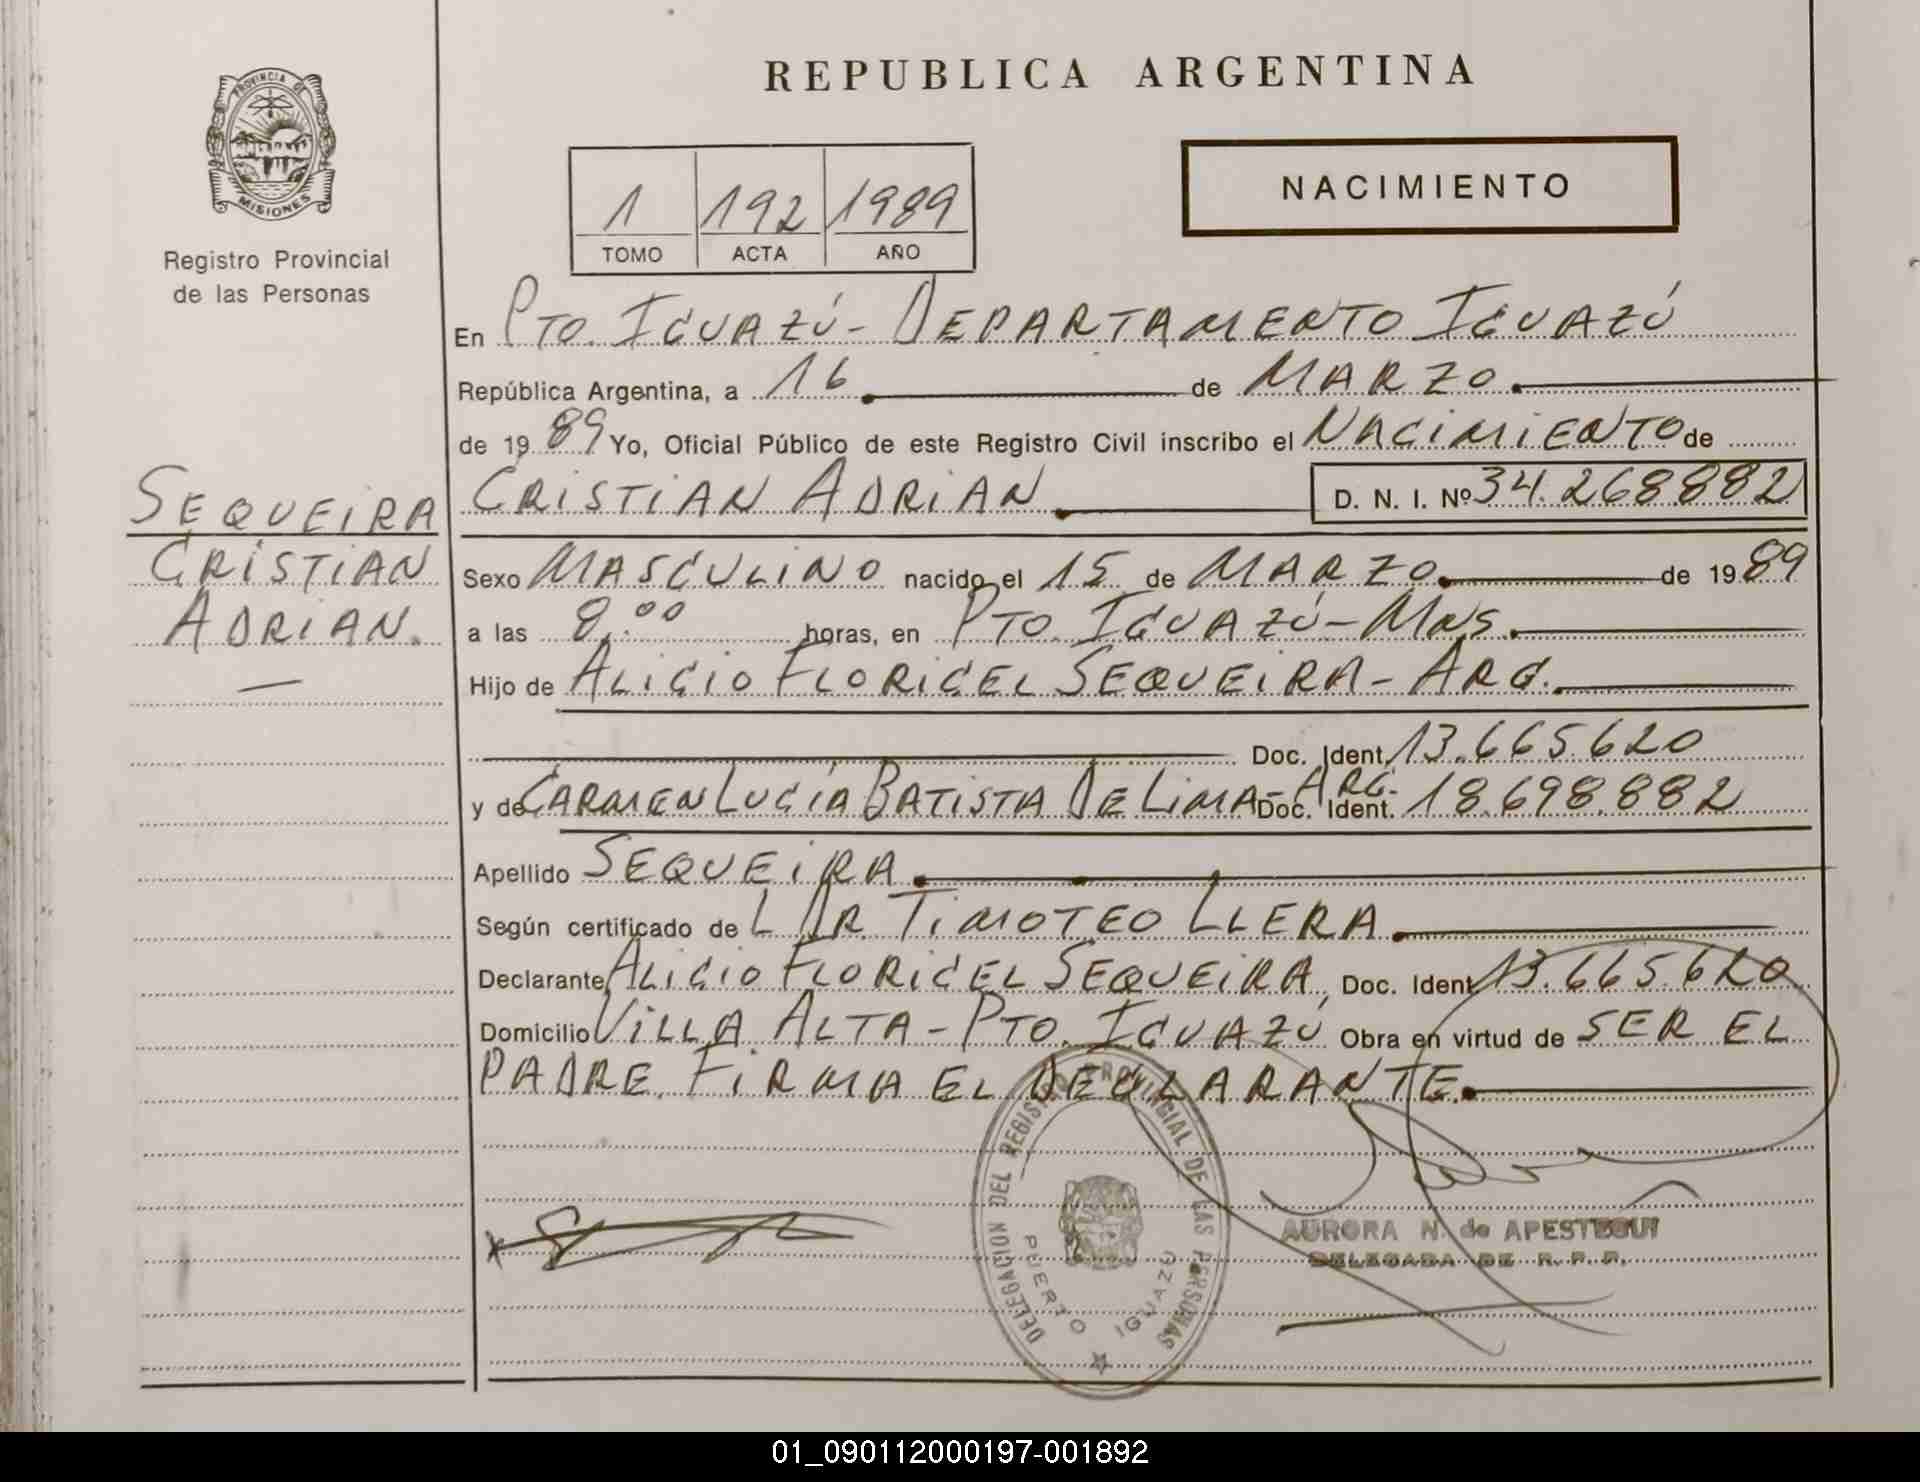 PROVINCIA DE
MISIONES
Registro Provincial
de las Personas
SEQUEIRA
CRISTIAN
ADRIAN.
REPUBLICA ARGENTINA
1 192 1989
TOMO ACTA AÑO
NACIMIENTO
En PTO. IGUAZÚ - DEPARTAMENTO IGUAZÚ
República Argentina, a 16 de MARZO
de 1989 Yo, Oficial Público de este Registro Civil inscribo el NACIMIENTO de
CRISTIAN ADRIAN D. N. I. Nº 34.268.882
Sexo MASCULINO nacido el 15 de MARZO de 1989
a las 8.00 horas, en PTO. IGUAZÚ - MNS.
Hijo de ALICIO FLORICEL SEQUEIRA - ARG.
Doc. Ident. 13.665.620
y de CARMEN LUCÍA BATISTA DE LIMA - ARG. Doc. Ident. 18.698.882
Apellido SEQUEIRA
Según certificado de L DR. TIMOTEO LLERA
Declarante ALICIO FLORICEL SEQUEIRA, Doc. Ident 13.665.620
Domicilio VILLA ALTA - PTO. IGUAZÚ Obra en virtud de SER EL
PADRE. FIRMA EL DECLARANTE.
DELEGACION DEL REGISTRO PROVINCIAL DE LAS PERSONAS
PUERTO IGUAZU
AURORA N. de APESTEGUI
DELEGADA DE R. P. P.
01_090112000197-001892